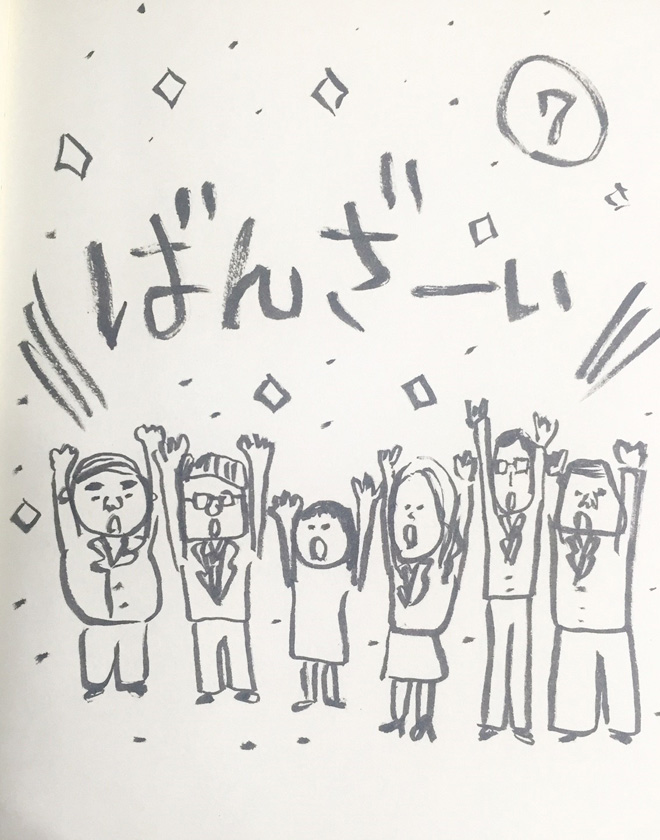 ⑦
ばんざーい